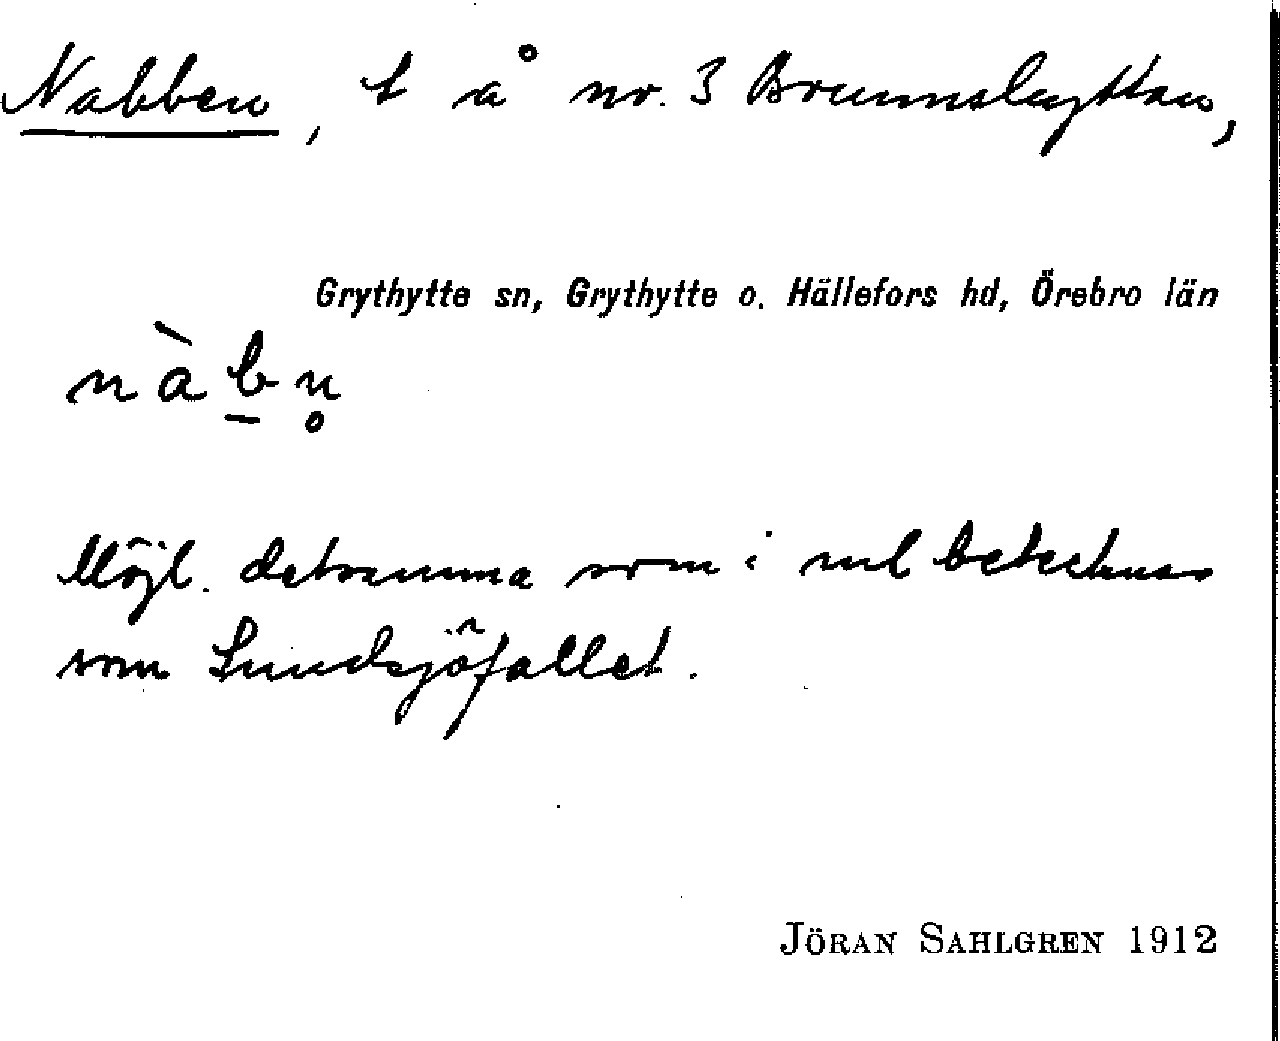 Nabben, t å nr. 3 Brunnshyttan,
Grythytte sn, Grythytte o. Hällefors hd, Örebro län
nàb̲n̥
Möjl. detsamma som i ml betecknas
som Sundsjöfallet.
JÖRAN SAHLGREN 1912